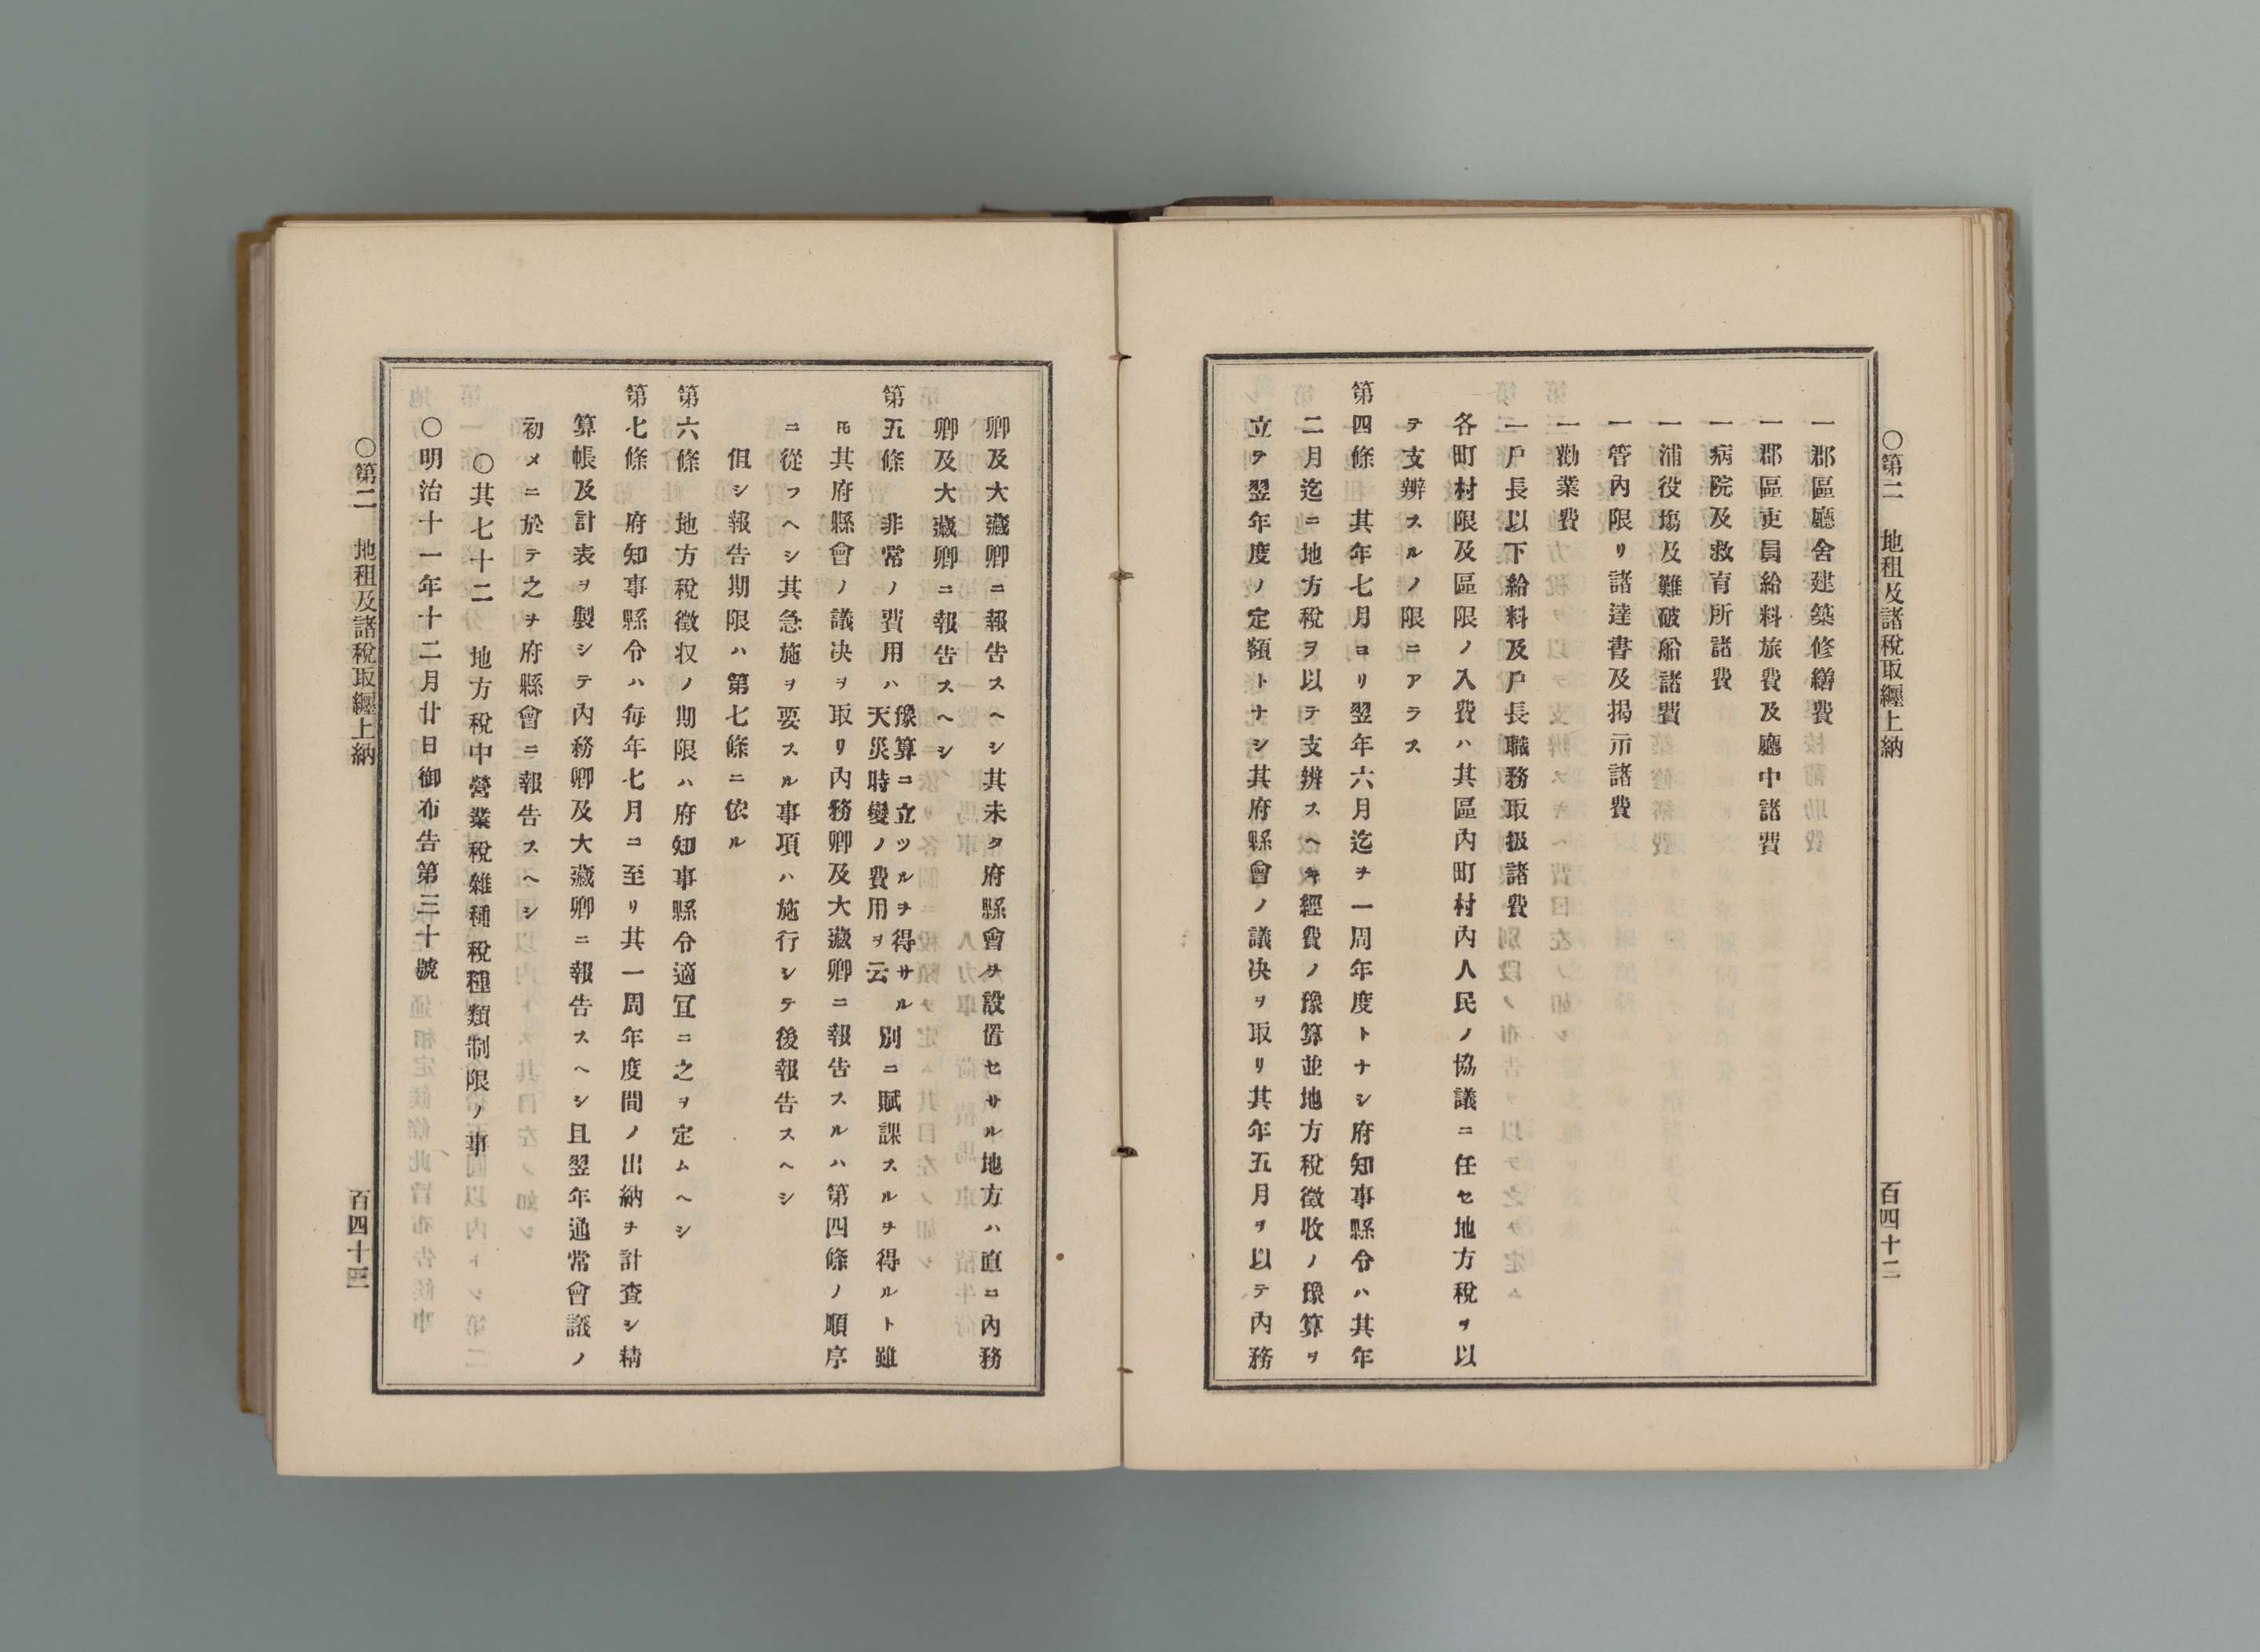 〇第二 地租及諸税取纒上納
百四十二
一郡區廳舍建築修繕費
一郡區吏員給料旅費及廳中諸費
一病院及救育所諸費
一浦役塲及難破船諸費
一管内限リ諸達書及掲示諸費
一勸業費
一戸長以下給料及戸長職務取扱諸費
各町村限及區限ノ入費ハ其區内町村内人民ノ協議ニ任セ地方税ヲ以
テ支辨スルノ限ニアラス
第四條 其年七月ヨリ翌年六月迄ヲ一周年度トナシ府知事縣令ハ其年
二月迄ニ地方税ヲ以テ支辨スヘキ經費ノ豫算並地方税徴收ノ豫算ヲ
立テ翌年度ノ定額トナシ其府縣會ノ議决ヲ取リ其年五月ヲ以テ内務
卿及大藏卿ニ報告スヘシ其未タ府縣會ヲ設置セサル地方ハ直ニ内務
卿及大藏卿ニ報告スヘシ
第五條 非常ノ費用ハ豫算ニ立ツルヲ得サル天災時變ノ費用ヲ云別ニ賦課スルヲ得ルト雖
𪜈其府縣會ノ議决ヲ取リ内務卿及大藏卿ニ報告スルハ第四條ノ順序
ニ從フヘシ其急施ヲ要スル事項ハ施行シテ後報告スヘシ
但シ報告期限ハ第七條ニ依ル
第六條 地方税徴収ノ期限ハ府知事縣令適冝ニ之ヲ定ムヘシ
第七條 府知事縣令ハ毎年七月ニ至リ其一周年度間ノ出納ヲ計査シ精
算帳及計表ヲ製シテ内務卿及大藏卿ニ報告スヘシ且翌年通常會議ノ
初メニ於テ之ヲ府縣會ニ報告スヘシ
〇其七十二 地方税中營業税雜種税種類制限ノ事
〇明治十一年十二月廿日御布告第三十九號
〇第二 地租及諸税取纒上納
百四十三